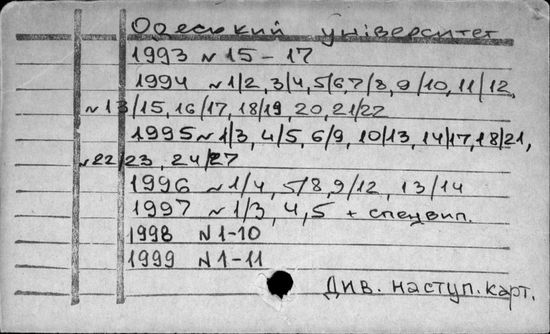 Одеський університет
1993 N 15-17
1994 N 1/2, 3/4, 5/6, 7/8, 9/10, 11/12,
N 13/15, 16/17, 18/19, 20, 21/22
1995 N 1/3, 4/5, 6/9, 10/13, 14/17, 18/21,
N 22/23, 24/27
1996 N 1/4, 5/8, 9/12, 13/14
1997 N 1/3, 4, 5 + спецвип.
1998 N 1-10
1999 N 1-11
Див. наступ. карт.